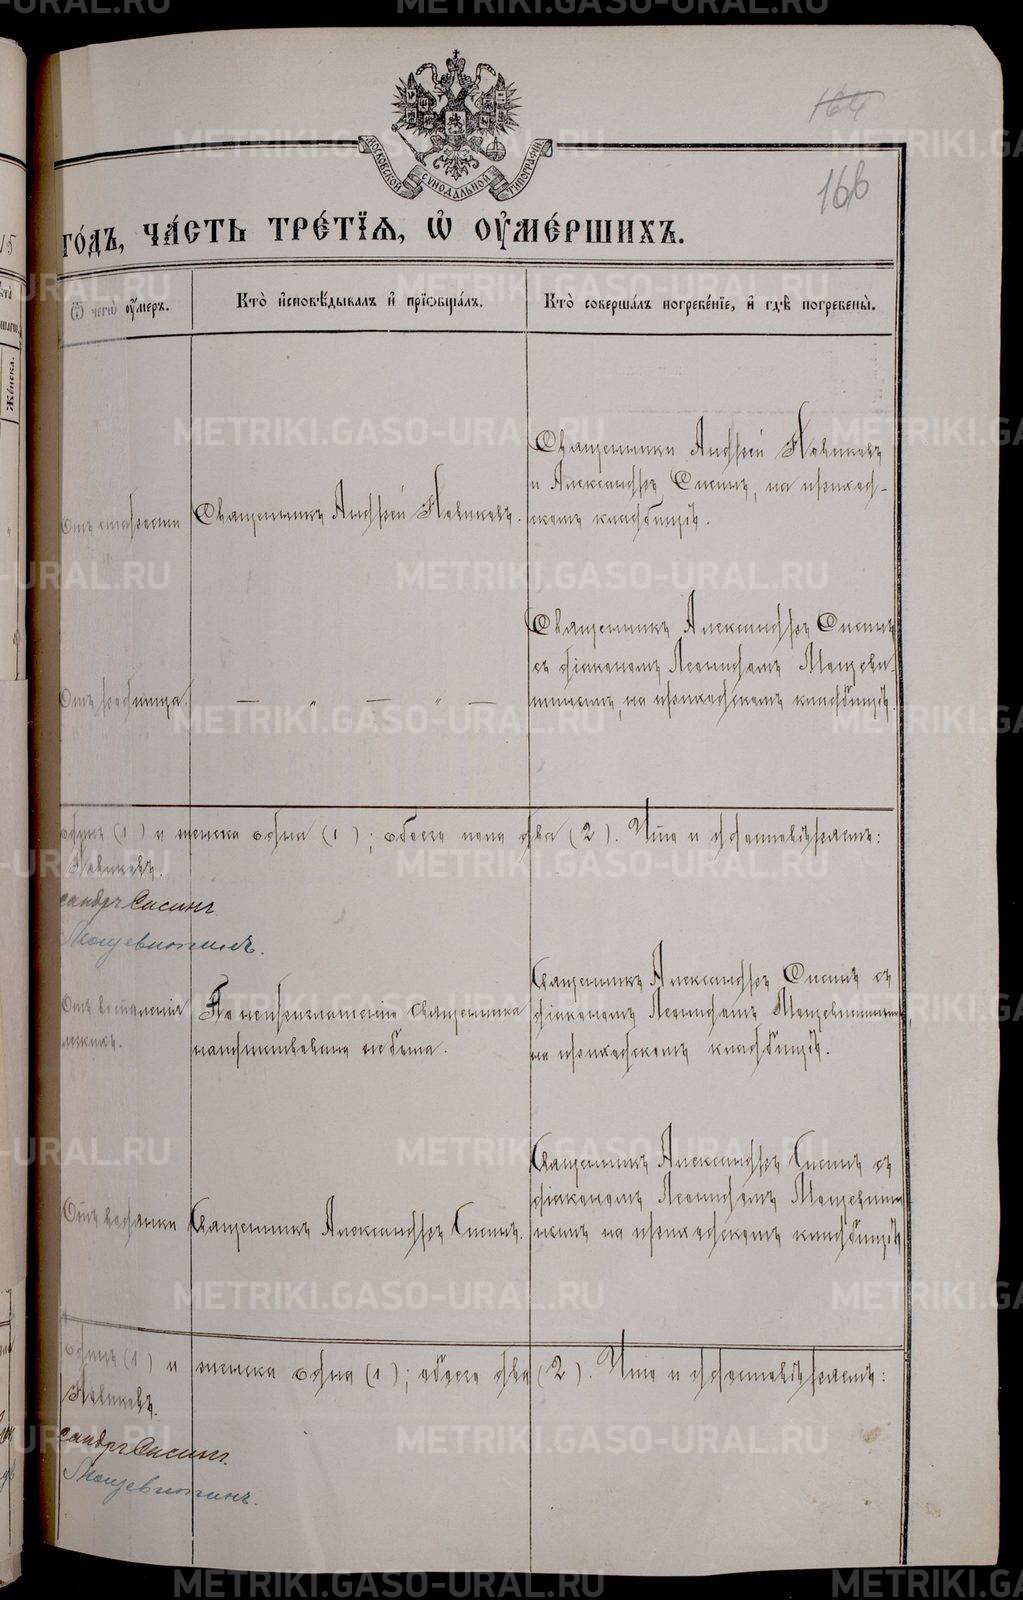 164
166
МОСКОВСКОЙ СѴНОДАЛЬНОЙ ТИПОГРАФІИ
го́дъ, ча́сть тре́тїѧ, ѡ҆ ᲂу҆ме́ршихъ.
Ѿ чегѡ̀ ᲂу҆́меръ.
Кто̀ и҆сповѣ́дывалъ и҆ прїѡбща́лъ.
Кто̀ соверша́лъ погребе́нїе, и҆ гдѣ̀ погребены̀.
Же́нска.
Отъ старости
Священникъ Андрей Новиковъ.
Священники Андрей Новиковъ
и Александръ Сисинъ, на приход-
скомъ кладбищѣ.
Отъ родимца
— " — " —
Священникъ Александръ Сисинъ
съ діакономъ Леонидомъ Мощеви-
тинымъ, на приходскомъ кладбищѣ.
одинъ (1) и женска одна (1); обоего пола два (2). Что и удостовѣряемъ:
Новиковъ.
сандръ Сисинъ
Мощевитинъ.
Отъ воспаленія
легкихъ.
По неприглашенію священника
напутствована не была.
Священникъ Александръ Сисинъ съ
діакономъ Леонидомъ Мощевитинымъ,
на приходскомъ кладбищѣ.
Отъ водянки
Священникъ Александръ Сисинъ.
Священникъ Александръ Сисинъ съ
діакономъ Леонидомъ Мощевити-
нымъ на приходскомъ кладбищѣ
одинъ (1) и женска одна (1); обоего два (2). Что и удостовѣряемъ:
Новиковъ.
сандръ Сисинъ.
Мощевитинъ.
METRIKI.GASO-URAL.RU